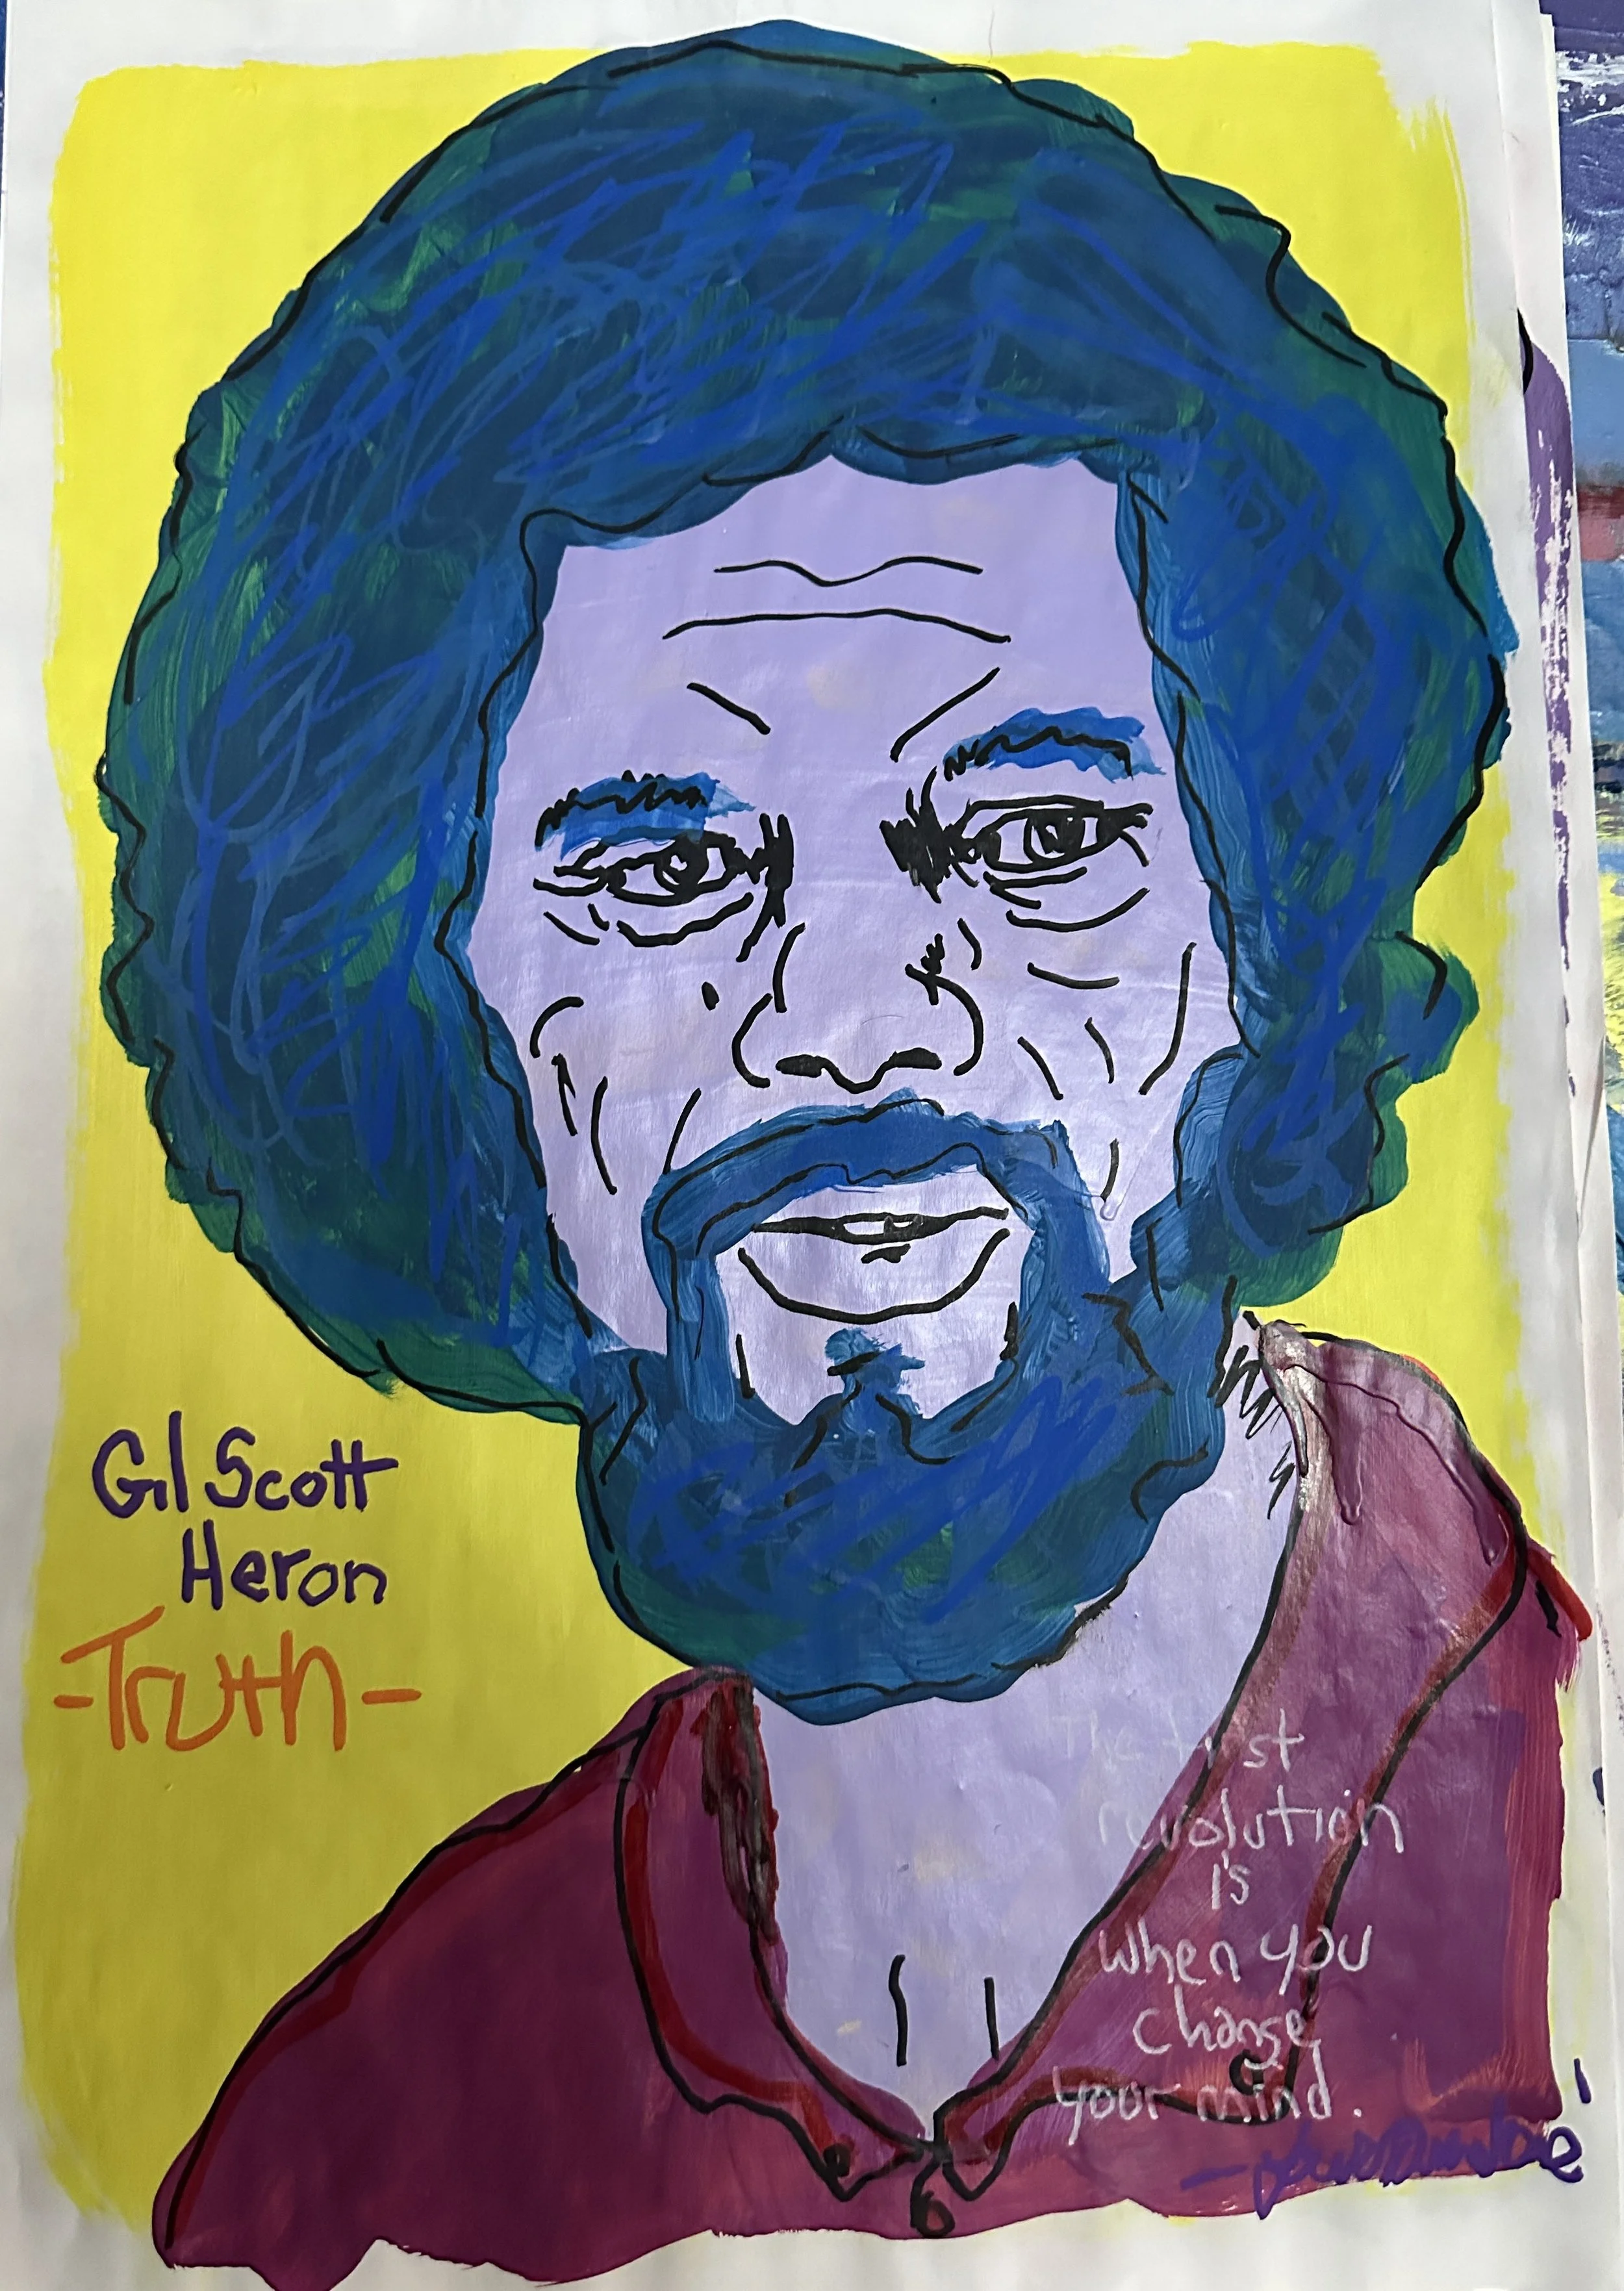 Gil Scott
Heron
-Truth-
The first
revolution
is
when you
change
your mind.